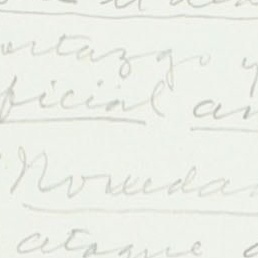 ortazgo y
oficial an
Novedad
ataque a